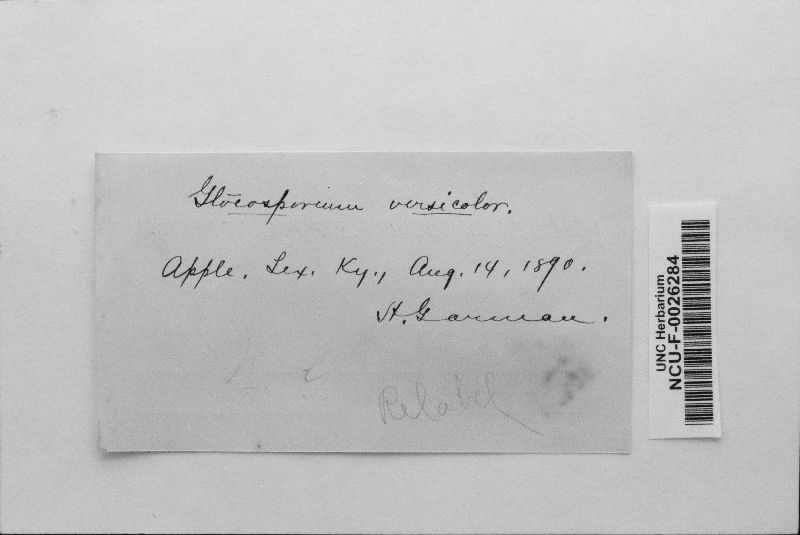 Glöeosporium versicolor.
Apple. Lex. Ky., Aug. 14, 1890.
H. Garman.
Relabel
UNC Herbarium
NCU-F-0026284